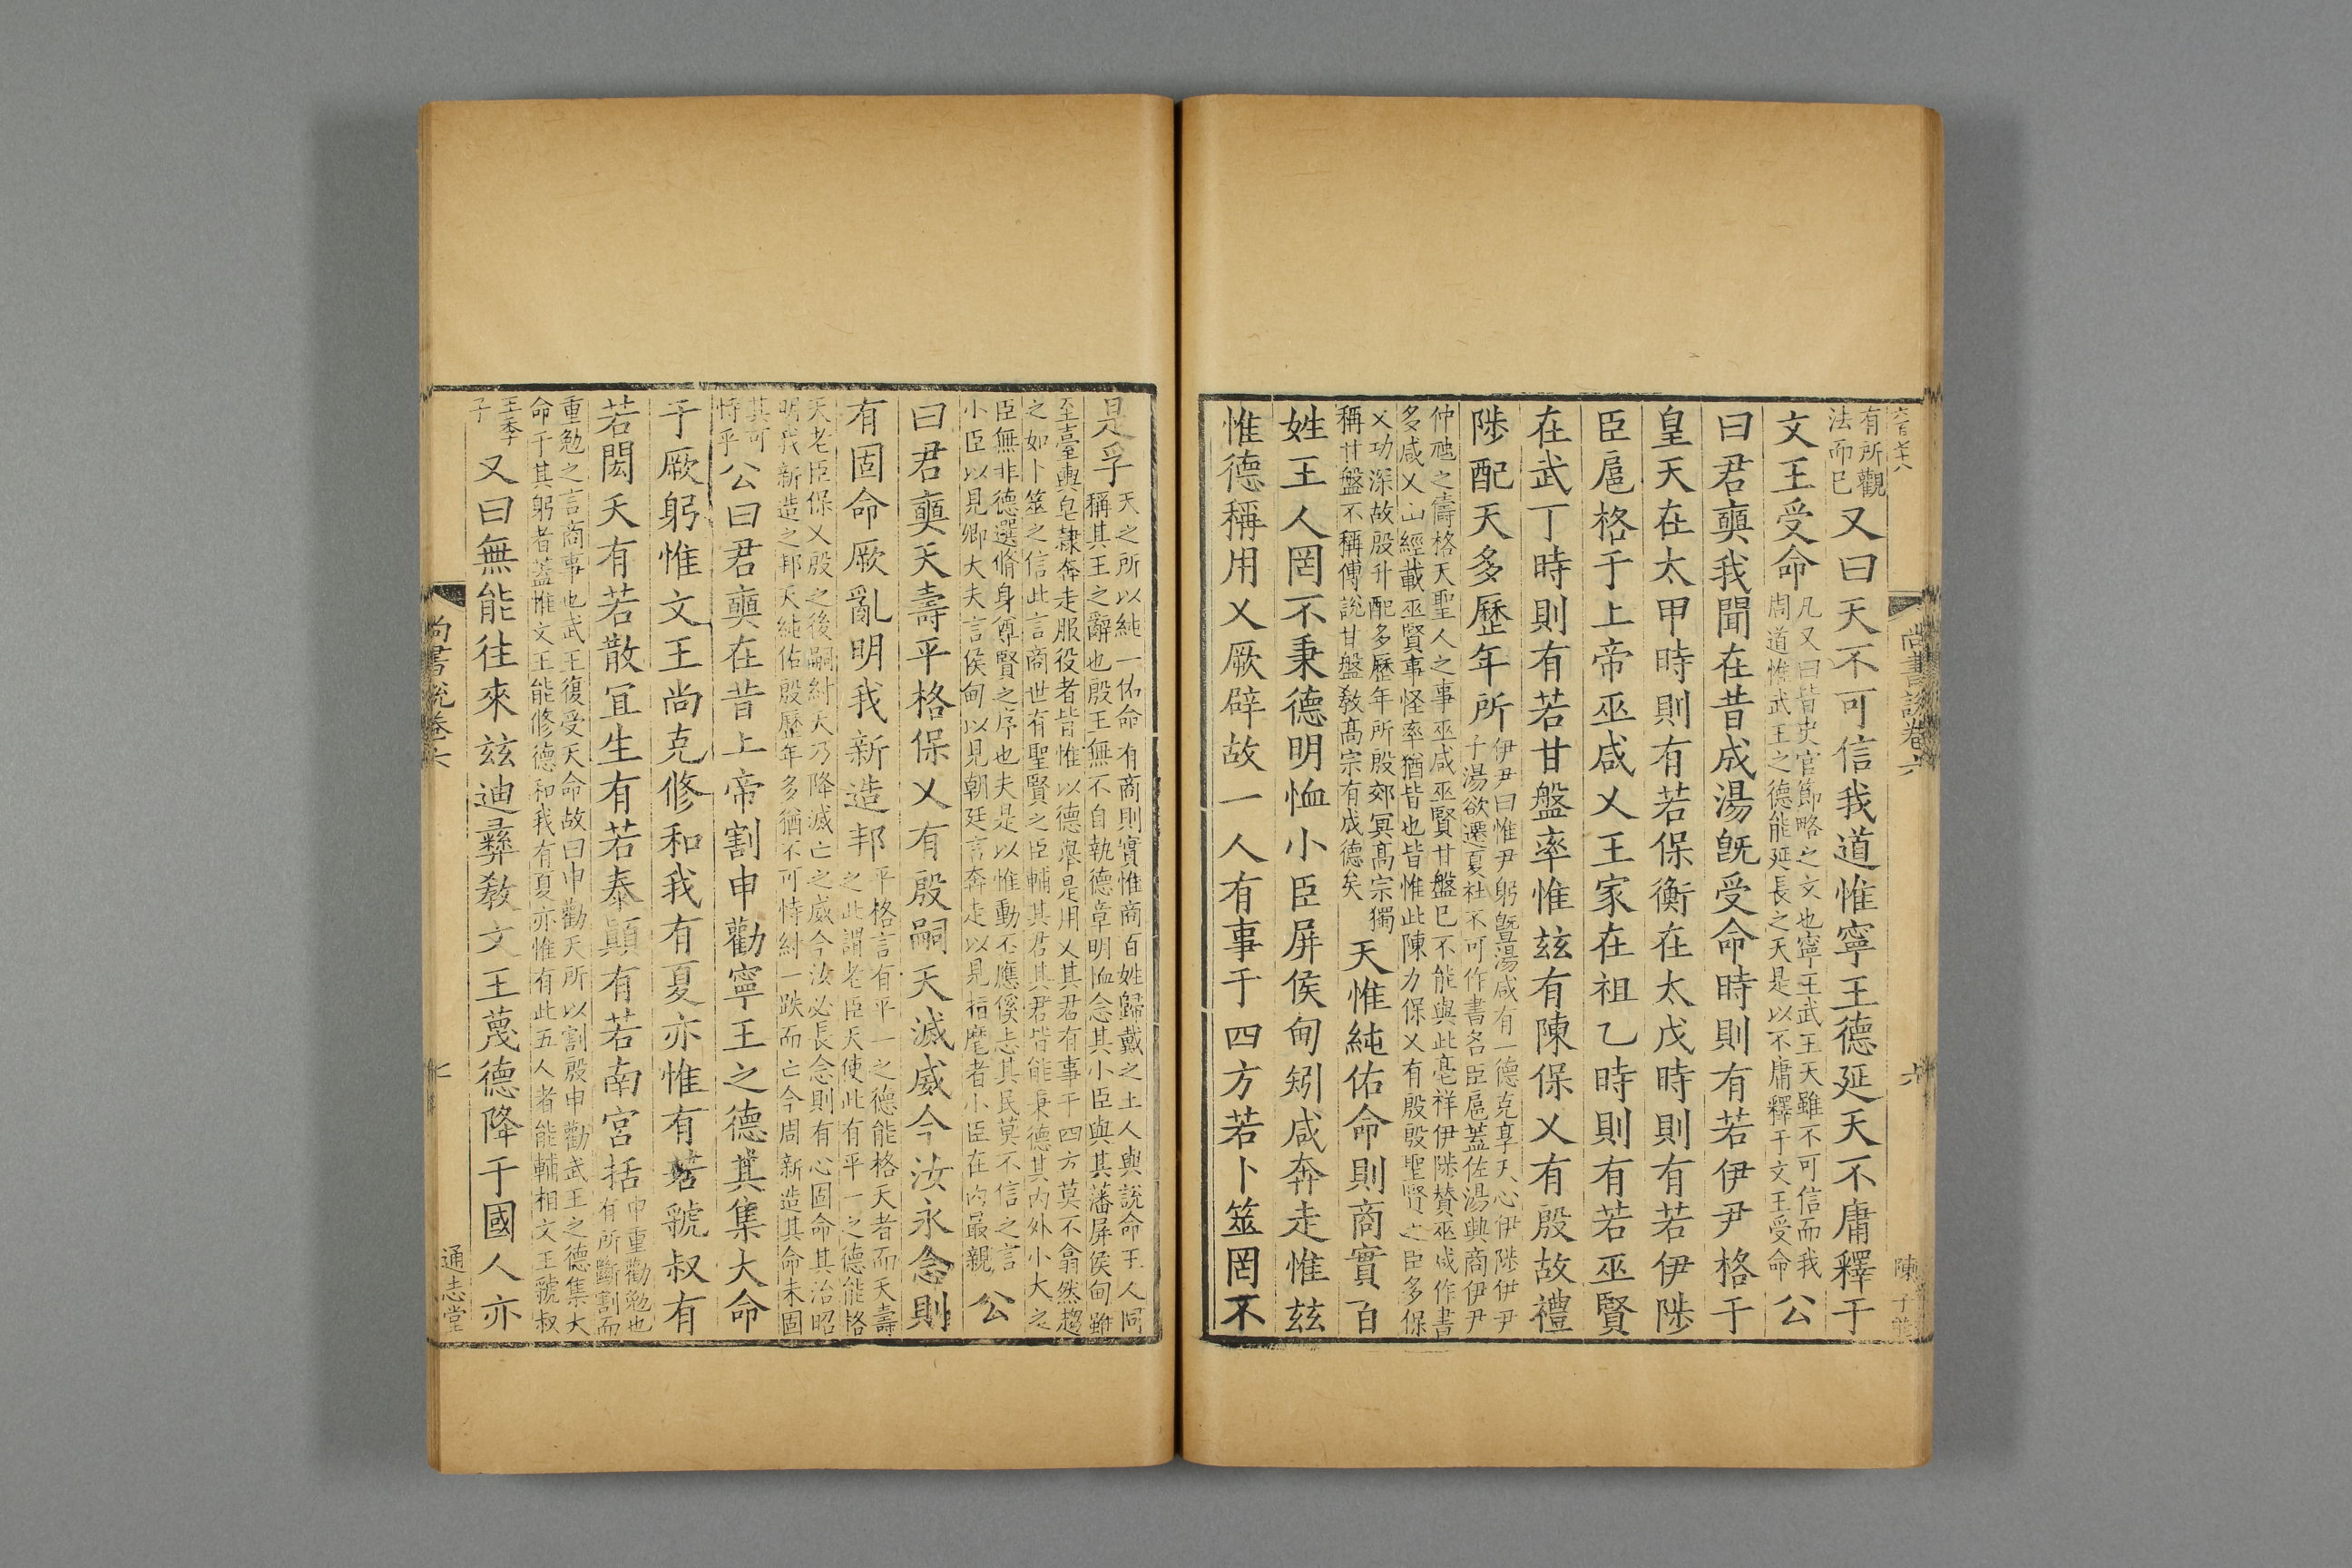 有所觀法而已又曰天不可信我道惟寧王德延天不庸釋于
文王受命凡又曰皆史官節略之文也寧王武王天雖不可信而我周道惟武王之德能延長之天是以不庸釋于文王受命公
曰君奭我聞在昔成湯旣受命時則有若伊尹格于
皇天在太甲時則有若保衡在太戊時則有若伊陟
臣扈格于上帝巫咸乂王家在祖乙時則有若巫賢
在武丁時則有若甘盤率惟玆有陳保乂有殷故禮
陟配天多歷年所伊尹曰惟尹躬曁湯咸有一德克享天心伊陟伊尹子湯欲遷夏社不可作書名臣扈蓋佐湯與商伊尹
仲虺之壽格天聖人之事巫咸巫賢甘盤已不能與此亳祥伊陟贊巫咸作書多咸乂山經載巫賢事怪率猶皆也皆惟此陳力保乂有殷殷聖賢之臣多保
乂功深故殷升配多歷年所殷郊冥高宗獨稱甘盤不稱傅說甘盤敎高宗有成德矣天惟純佑命則商實百
姓王人罔不秉德明恤小臣屏侯甸矧咸奔走惟玆
惟德稱用乂厥辟故一人有事于四方若卜筮罔不
尚書說卷六
六
陳子
是孚天之所以純一佑命有商則實惟商百姓歸戴之王人與說命王人同稱其王之辭也殷王無不自執德章明恤念其小臣與其藩屏侯甸雖
至臺輿皂隷奔走服役者皆惟以德舉是用乂其君有事于四方莫不翕然趨之如卜筮之信此言商世有聖賢之臣輔其君其君皆能秉德其內外小大之
臣無非德選脩身尊賢之序也夫是以惟動丕應徯志其民莫不信之言小臣以見卿大夫言侯甸以見朝廷言奔走以見指麾者小臣在內最親公
曰君奭天壽平格保乂有殷嗣天滅威今汝永念則
有固命厥亂明我新造邦平格言有平一之德能格天者而天壽之此謂老臣天使此有平一之德能格
天老臣保乂殷之後嗣紂大乃降滅亡之威今汝必長念則有心固命其治昭明我新造之邦天純佑殷歷年多猶不可恃紂一跌而亡今周新造其命未固
其可恃乎公曰君奭在昔上帝割申勸寧王之德其集大命
于厥躬惟文王尚克修和我有夏亦惟有若虢叔有
若閎夭有若散宜生有若泰顚有若南宮括申重勸勉也有所斷割而
重勉之言商事也武王復受天命故曰申勸天所以割殷申勸武王之德集大命于其躬者蓋惟文王能修德和我有夏亦惟有此五人者能輔相文王虢叔
王季子又曰無能往來玆迪彞敎文王蔑德降于國人亦
尚書說卷六
七
通志堂